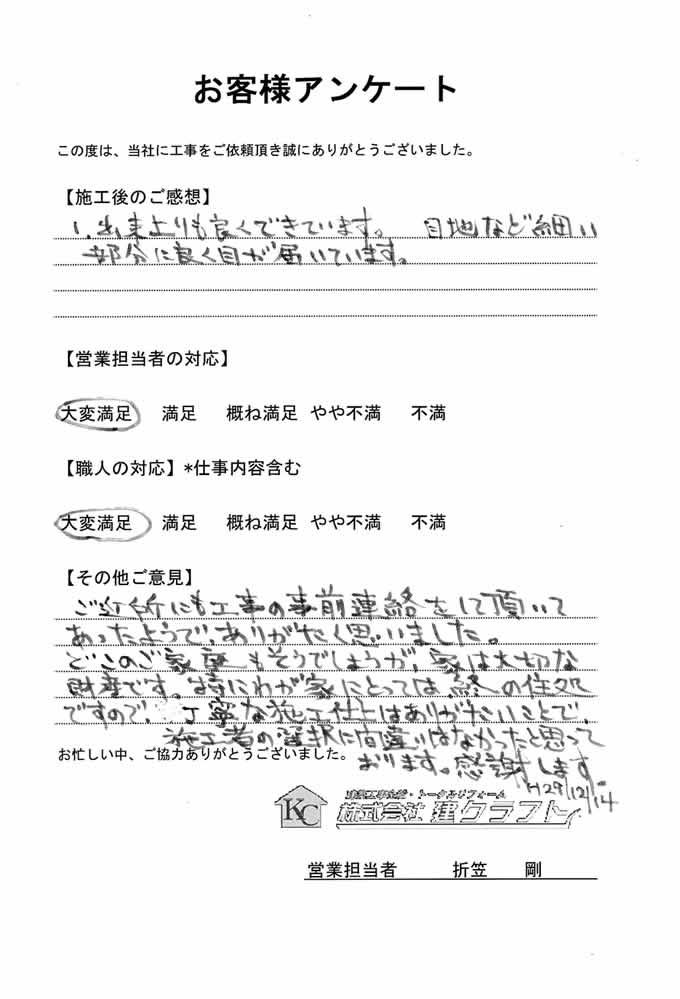 お客様アンケート
この度は、当社に工事をご依頼頂き誠にありがとうございました。
【施工後のご感想】
1.出来上りも良くできています。 目地など細い
部分に良く目が届いています。
【営業担当者の対応】
大変満足 満足 概ね満足 やや不満 不満
【職人の対応】*仕事内容含む
大変満足 満足 概ね満足 やや不満 不満
【その他ご意見】
ご近所にも工事の事前連絡をして頂いて
あったようで、ありがたく思いました。
どこのご家庭もそうでしょうが、家は大切な
財産です。特にわが家にとっては終の住処
ですので、丁寧な施工仕上はありがたいことで、
施工者の選択に間違いはなかったと思って
おります。感謝します
お忙しい中、ご協力ありがとうございました。
H29/12/14
KC
・トータルリフォーム
株式会社 建クラフト
営業担当者 折笠 剛